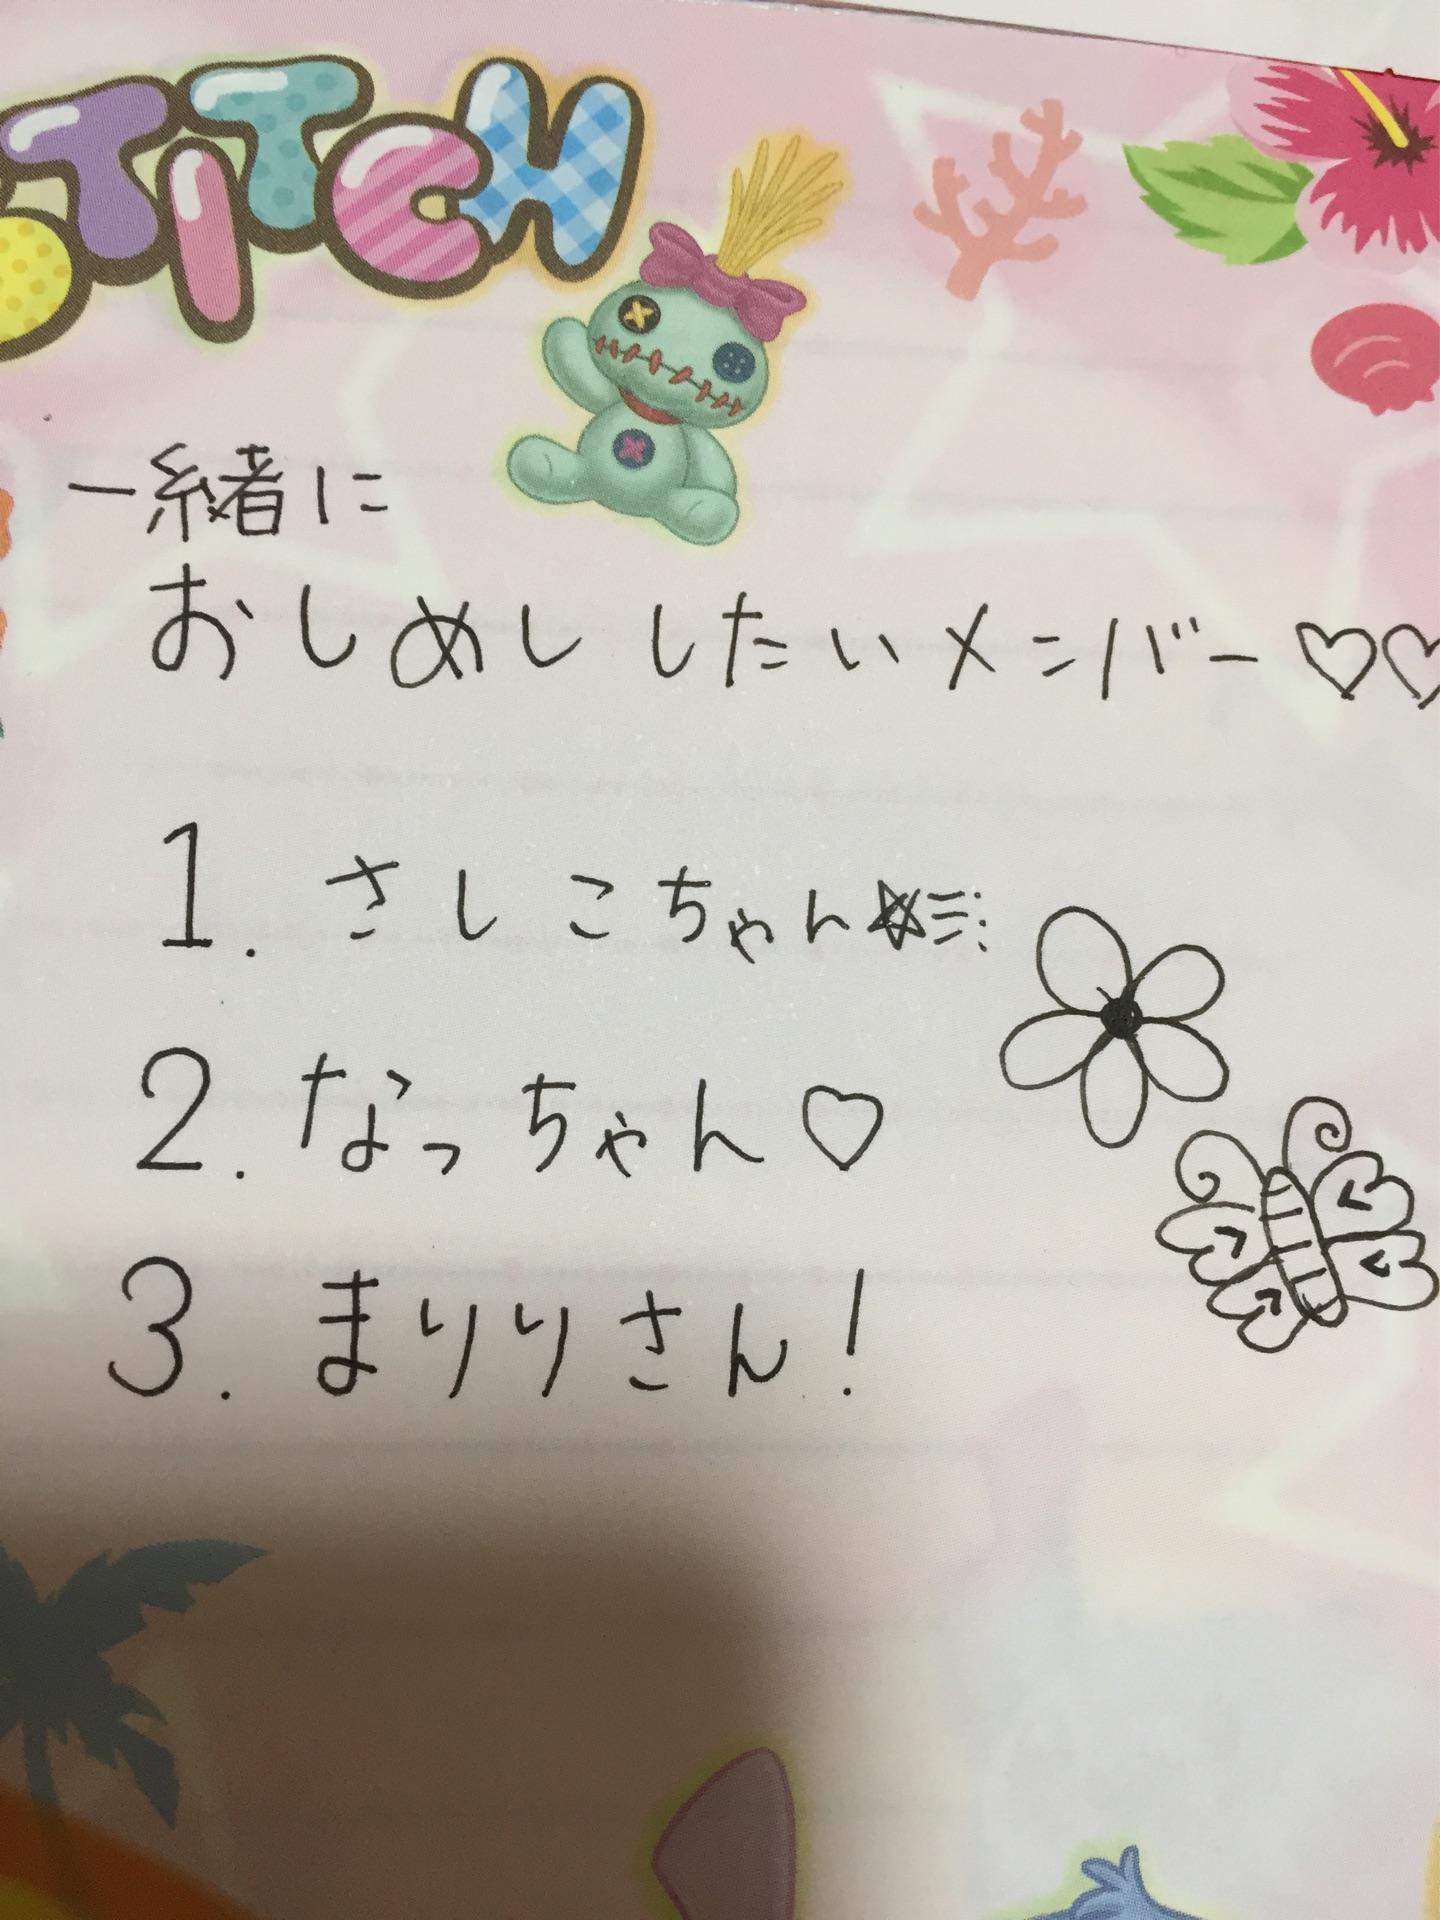 STITCH
一緒に
おしめし したいメンバー♡♡
1. さしこちゃん☆
2. なっちゃん♡
3. まりりさん!